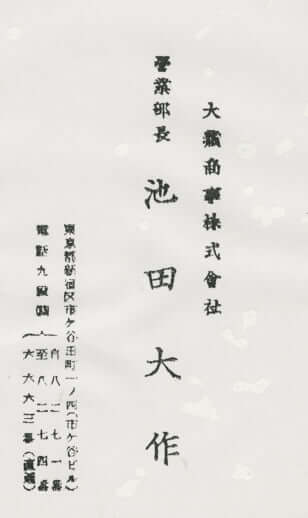 大藏商事株式會社
營業部長
池田大作
東京都新宿区市ケ谷田町一ノ四(市ケ谷ビル)
電話九段
自八二七一番
至八二七四番
六六六三番(直通)